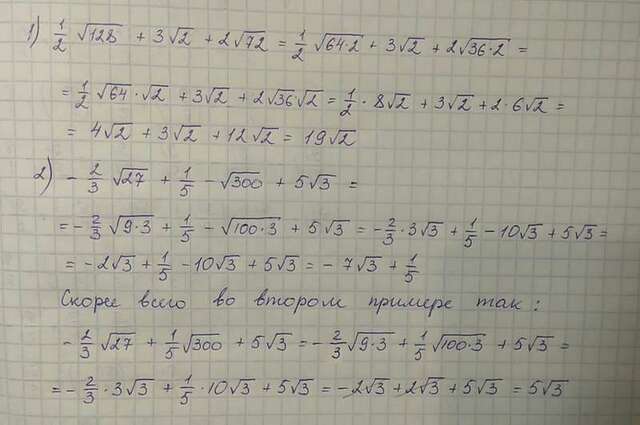 1) 1/2 √128 + 3√2 + 2√72 = 1/2 √64·2 + 3√2 + 2√36·2 =
= 1/2 √64·√2 + 3√2 + 2√36√2 = 1/2 · 8√2 + 3√2 + 2·6√2 =
= 4√2 + 3√2 + 12√2 = 19√2
2) - 2/3 √27 + 1/5 - √300 + 5√3 =
= - 2/3 √9·3 + 1/5 - √100·3 + 5√3 = - 2/3 · 3√3 + 1/5 - 10√3 + 5√3 =
= -2√3 + 1/5 - 10√3 + 5√3 = - 7√3 + 1/5
Скорее всего во втором примере так:
- 2/3 √27 + 1/5 √300 + 5√3 = - 2/3 √9·3 + 1/5 √100·3 + 5√3 =
= - 2/3 · 3√3 + 1/5 · 10√3 + 5√3 = -2√3 + 2√3 + 5√3 = 5√3